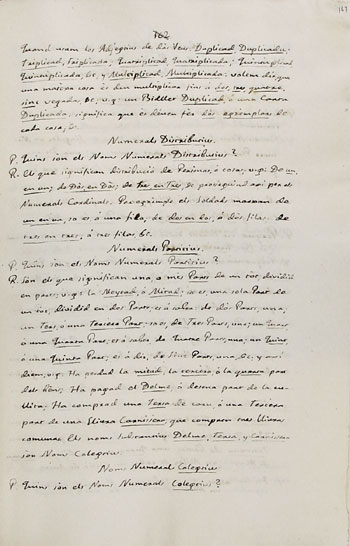 162
Quand usam los Adjectius de las Veus Duplicad, Duplicada,
triplicad, triplicada; Quatriplicad, Quatriplicada; Quintuplicad
Quintuplicada, &c, y Multiplicad, Multiplicada: valem dir, que
una mateixa cosa es den multiplicar fins a dos, tres, quatre,
sinc vegadas, &c, v.g: un Bidller Duplicad, o una Carta
Duplicada, significa que es deuen fer dos exemplars de
cada cosa, &.
Numerals Distribucius.
P. Quins son els Noms Numerals Distribucius?
R. Els que significan distribució de Personas, o cosas, v.g: De un
en un; de Dos en Dos; de Tres en Tres, &c
Numerals Cardinals. Per exemple els Soldats marxan de
un en un, so es, á una fila, de dos en dos, á dos filas, de
tres en tres, á tres filas, &c.
Numerals Partitius.
P. Quins son els Noms Numerals Partitius?
R. Son els que significan una o mes Parts de un tot dividid
en parts; v.g: la Meytad, o Mitad, so es, una sola Part de
un tos, dividid en dos Parts; es á saber, de dos Parts, una;
un Ters, o una Tercera Part, so es, de Tres Parts, una; un Quart,
o una Quarta Part, es á saber, de Quatre Parts, una; un Quint,
o una Quinta Part; es á dir, de Sinc Parts, una, &c, y axi
diem; v.g: Ha perdud la mitad, la tercera, o la quarta part
dels bens; Ha pagad el Delme, o desena part de la cu-
llita; Ha comprad una Tersa de carn, o una Tercera
part de una lliura Carnissera, que compon tres lliuras
comunas. Els noms substancius Delme, Tersa, y Carnissera
son Noms Colectius.
Noms Numerals Colectius
P. Quins son els Noms Numerals Colectius?